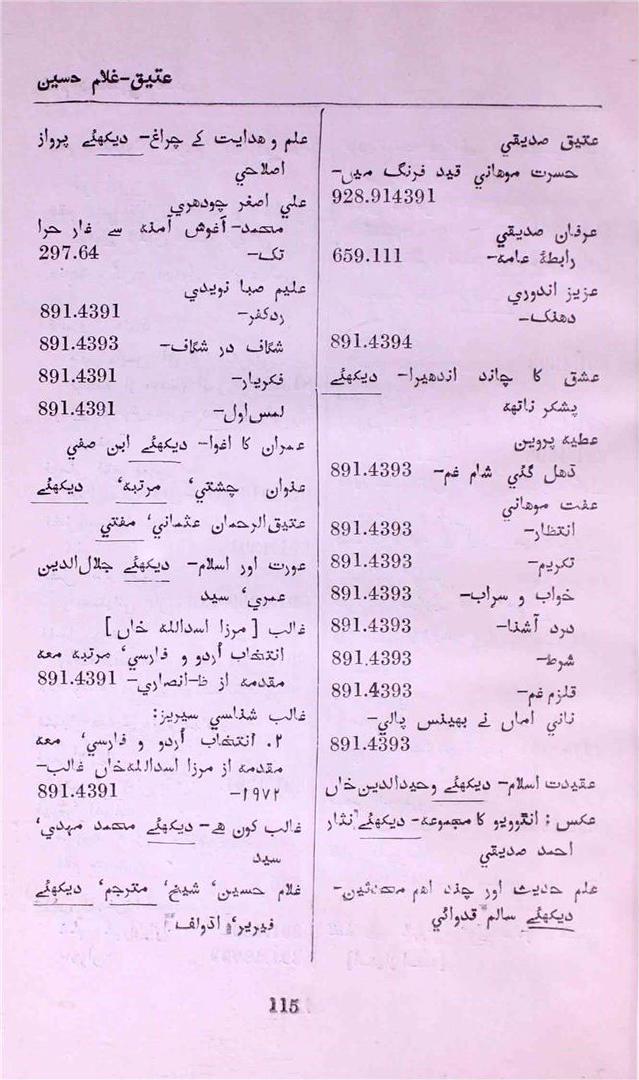 عتیق-غلام حسین
عتیق صدیقي
حسرت موهاني قید فرنگ میں-
928.914391
عرفان صدیقي
رابطۂ عامہ- 659.111
عزیز اندوري
دهنک-
891.4394
عشق کا چاند اندهیرا- دیکھئے
پشکر ناتھ
عطیہ پروین
ڈهل گئي شام غم- 891.4393
عفت موهاني
انتظار- 891.4393
تکریم- 891.4393
خواب و سراب- 891.4393
درد آشنا- 891.4393
شرط- 891.4393
قلزم غم- 891.4393
ناني اماں نے بھینس پالي-
891.4393
عقیدت اسلام- دیکھئے وحیدالدین خاں
عکس : انٹرویو کا مجموعہ- دیکھئے نثار
احمد صدیقي
علم حدیث اور چند اهم محدثین-
دیکھئے سالم قدوائي
علم و هدایت کے چراغ- دیکھئے پرواز
اصلاحي
علي اصغر چودهري
محمد- آغوش آمنہ سے غار حرا
تک- 297.64
علیم صبا نویدي
ردکفر- 891.4391
شگاف در شگاف- 891.4393
فکربار- 891.4391
لمس اول- 891.4391
عمران کا اغوا- دیکھئے ابن صفي
عنوان چشتي، مرتبہ، دیکھئے
عتیق الرحمان عثماني، مفتي
عورت اور اسلام- دیکھئے جلال الدین
عمري، سید
غالب [مرزا اسداللہ خاں]
انتخاب اُردو و فارسي، مرتبہ معہ
مقدمہ از ظ-انصاري- 891.4391
غالب شناسي سیریز:
۲. انتخاب اُردو و فارسي، معہ
مقدمہ از مرزا اسداللہ خاں غالب-
۱۹۷۲- 891.4391
غالب کون هے- دیکھئے محمد مهدي،
سید
غلام حسین، شیخ، مترجم، دیکھئے
فیریر، اڈولف
115